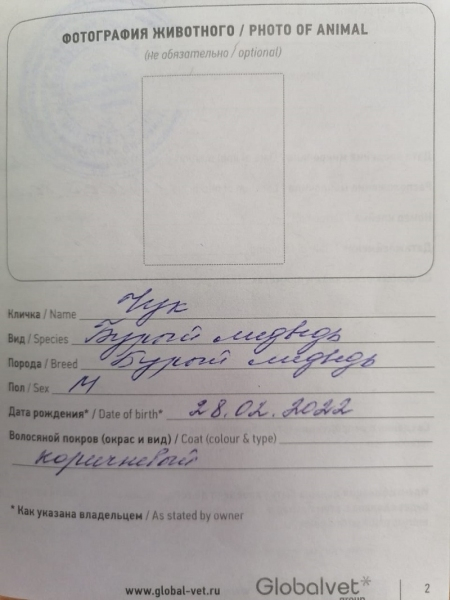 ФОТОГРАФИЯ ЖИВОТНОГО / PHOTO OF ANIMAL
(не обязательно / optional)
Кличка / Name Чук
Вид / Species Бурый медведь
Порода / Breed Бурый медведь
Пол / Sex М
Дата рождения* / Date of birth* 28.02.2022
Волосяной покров (окрас и вид) / Coat (colour & type)
коричневый
* Как указана владельцем / As stated by owner
www.global-vet.ru Globalvet* group 2